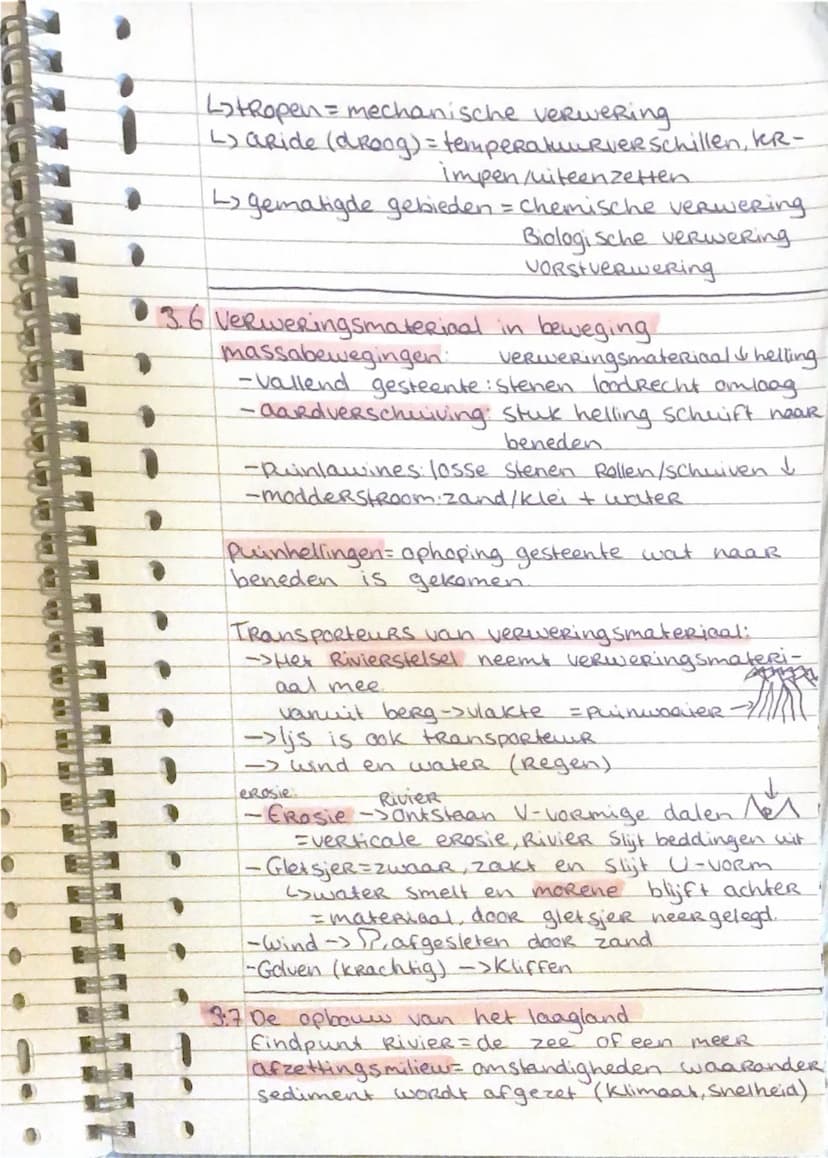 ↳ tropen = mechanische verwering
↳ aride (droog) = temperatuurverschillen, kr-
impen/uiteenzetten
↳ gematigde gebieden = chemische verwering
Biologische verwering
vorstverwering
3.6 Verweringsmateriaal in beweging
massabewegingen: verweringsmateriaal ↓ helling
- vallend gesteente: stenen loodrecht omlaag
- aardverschuiving: stuk helling schuift naar
beneden
- puinlawines: losse stenen rollen/schuiven ↓
- modderstroom: zand/klei + water
puinhellingen = ophoping gesteente wat naar
beneden is gekomen.
Transporteurs van verweringsmateriaal:
→ Het Rivierstelsel neemt verweringsmateri-
aal mee.
vanuit berg → vlakte = puinwaaier →
→ Ijs is ook transporteur
→ wind en water (regen)
erosie:
- Erosie → Rivier ontstaan V-vormige dalen
= verticale erosie, Rivier slijt beddingen uit
- Gletsjer = zwaar, zakt en slijt U-vorm
↳ water smelt en morene blijft achter
= materiaal, door gletsjer neergelegd.
- Wind → afgesleten door zand
- Golven (krachtig) → kliffen
3.7 De opbouw van het laagland
Eindpunt Rivier = de zee of een meer
afzettingsmilieu = omstandigheden waaronder
sediment wordt afgezet (klimaat, snelheid)